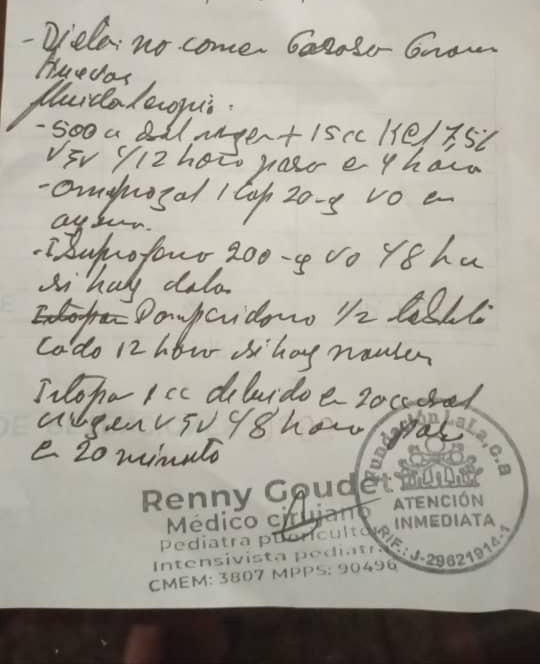 - Dieta: no comer Gaseoso Granos
Huevos
fluidoterapia:
- 500 cc sol + 15cc KCl 7,5%
VEV c/12 hora pasar en 4 hora
- Omeprazol 1 Cap 20 mg VO en
ayuna.
- Ibuprofeno 200 mg VO c/8 hr
si hay dolor
Domperidona 1/2 tableta
cada 12 hora si hay nausea
Irtopan 1 cc diluido en 20cc sol
VEV c/8 hora
en 20 minuto
Renny Goudet
Médico cirujano
Pediatra puericultor
Intensivista pediatr
CMEM: 3807 MPPS: 90496
Fundación LaLa, C.A
ATENCIÓN
INMEDIATA
RIF.: J-29621914-1